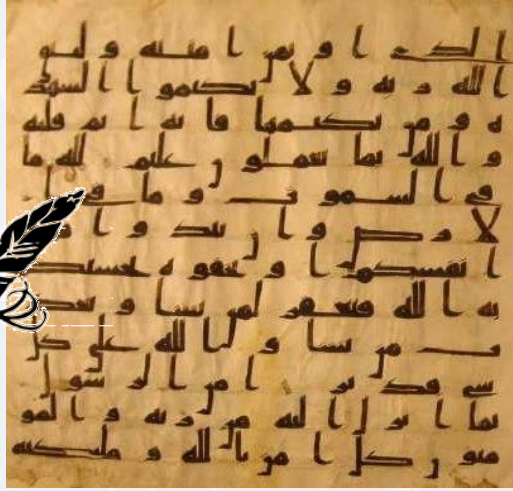 الذى اوتمن امنته وليتق
الله ربه ولا تكتموا الشهد
ه ومن يكتمها فانه اثم قلبه
والله بما تعملون عليم لله ما
في السموت وما في ا
لارض وان تبدوا ما
انفسكم او تخفوه يحسبكم
به الله فيغفر لمن يشا ويعذ
ب من يشا والله على كل
شي قدير امن الرسول
بما انزل اليه من ربه والمو
منون كل امن بالله وملئكته